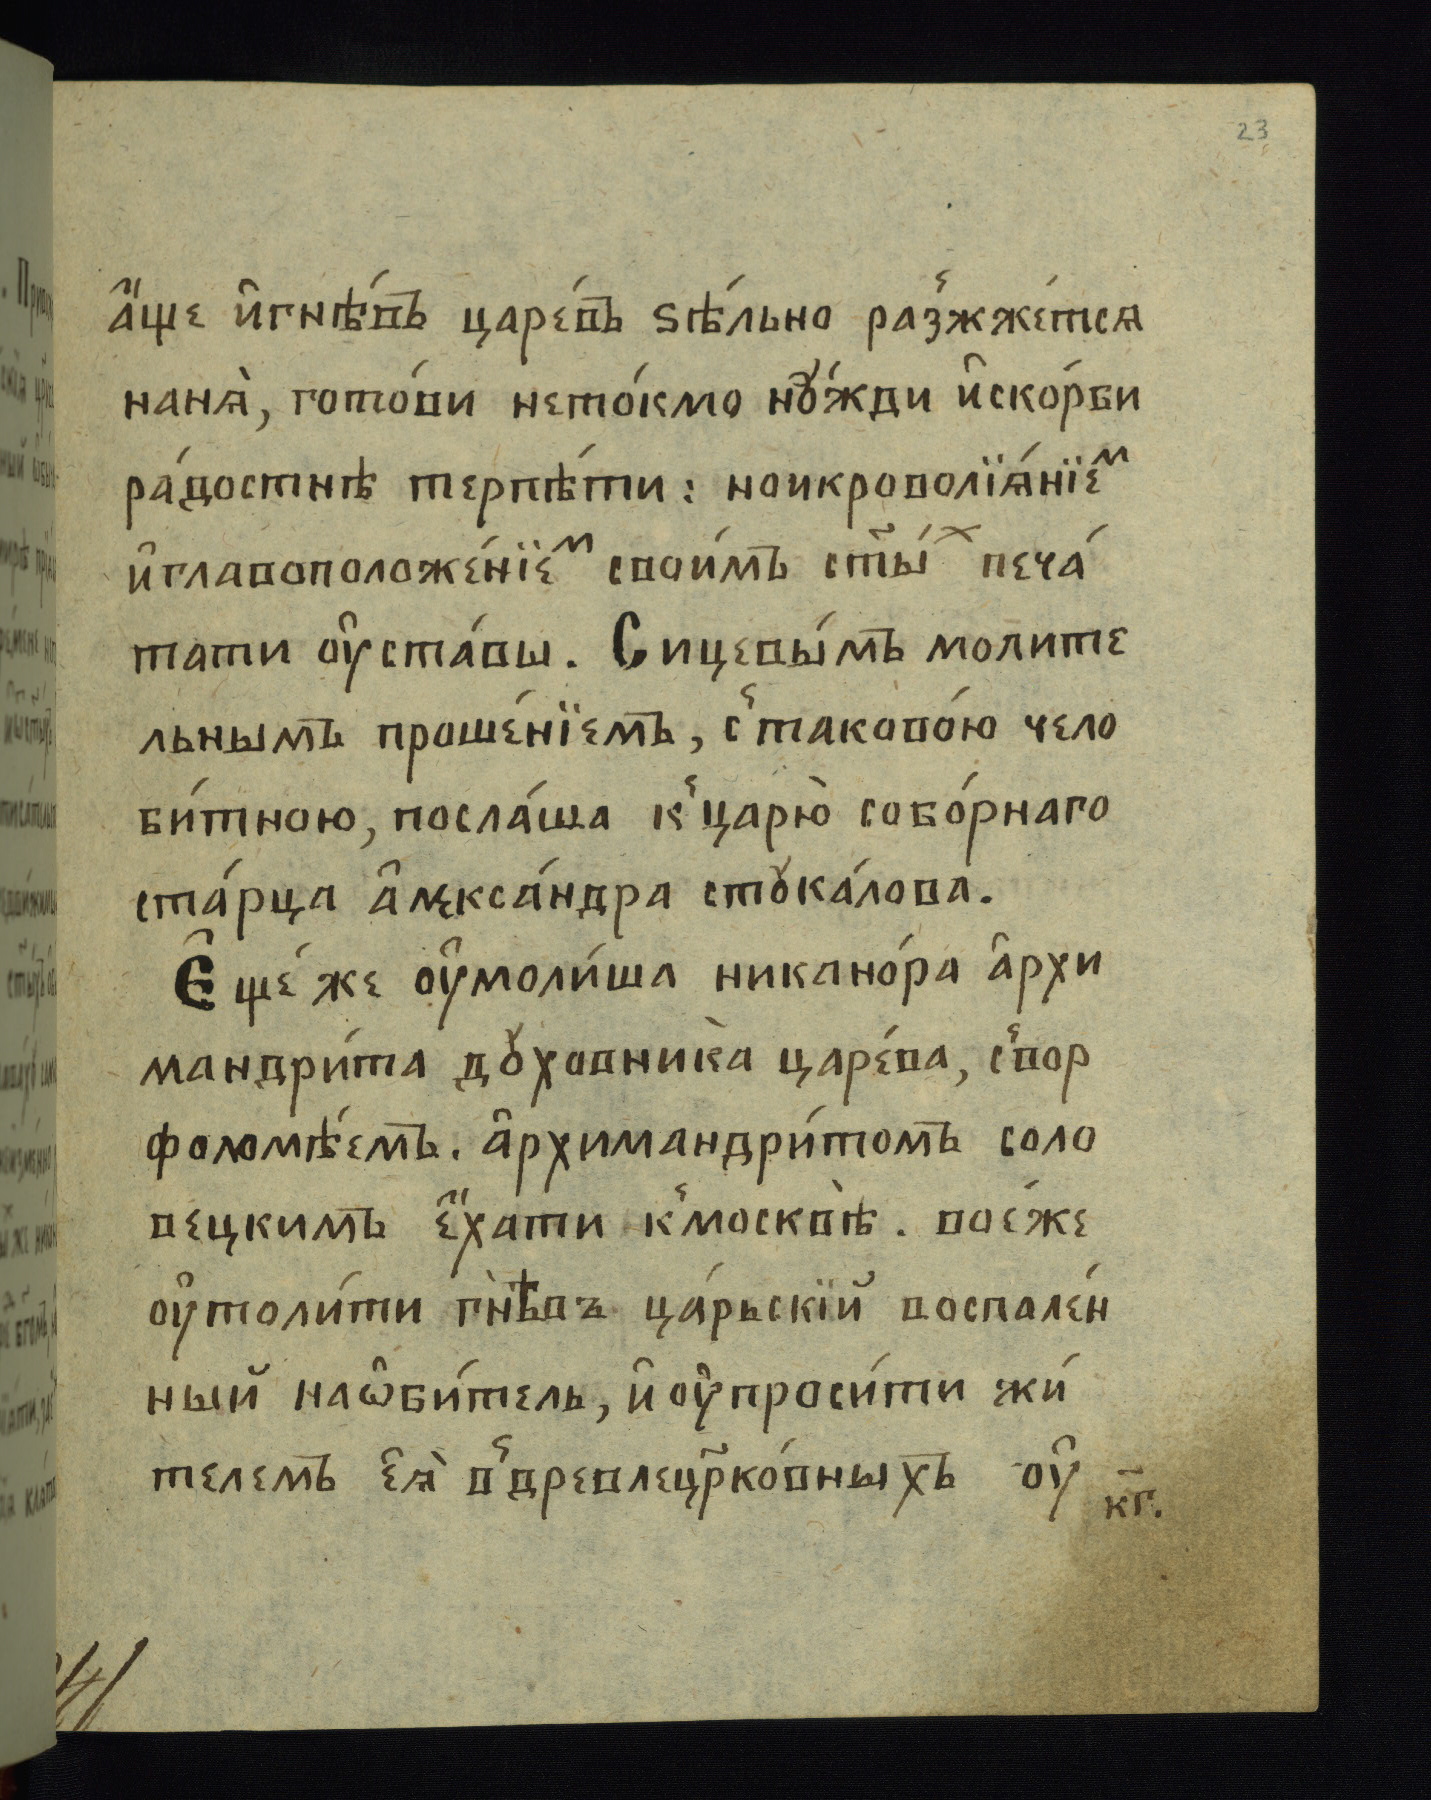 23
а҆́ще и҆гнѣ́въ царе́въ ѕѣ́льно раз̾жже́тсѧ
нанѧ̀, гото́ви нето́кмо нꙋ́жди и҆ско́рби
ра́достнѣ терпѣ́ти: ноикроволїѧ́нїеⷨ
и҆главоположе́нїеⷨ свои́мъ ст҃ы́ⷯ печа́
тати оу҆ста́вы. Сицевы́мъ молите
льнымъ проше́нїемъ, с̾таково́ю чело
би́тною, посла́ша к̾царю̀ собо́рнаго
ста́рца а҆леѯса́ндра стꙋка́лова.
Є҆ще́ же оу҆моли́ша никано́ра а҆рхи
мандри́та дꙋховника̀ царе́ва, с̾вор
фоломѣ́емъ. а҆рхимандри́томъ соло
вецкимъ е҆́хати к̾москвѣ̀. вое́же
оу҆толи́ти гнѣ̀въ ца́рьскїй воспале́н
ный наѡ҆би́тель, и҆ оу҆проси́ти жи́
телемъ е҆ѧ̀ в̾древлецр҃ко́вныхъ оу҆
к҃г.